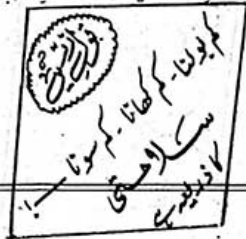 کم بولنا۔ کم کھانا۔ کم سونا —!
سلامتی
کا ذریعہ ہے